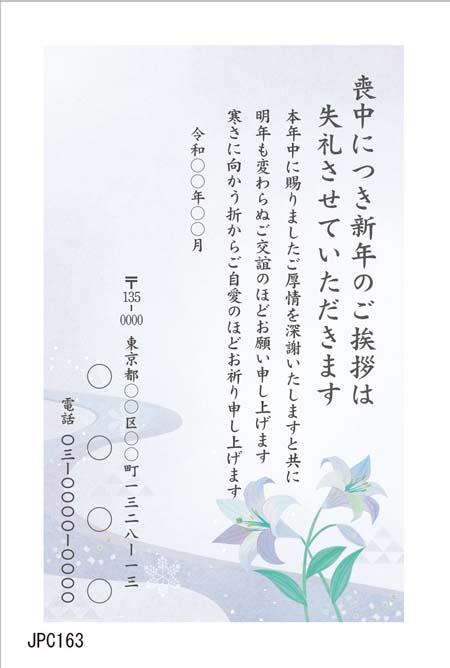 喪中につき新年のご挨拶は
失礼させていただきます
本年中に賜りましたご厚情を深謝いたしますと共に
明年も変わらぬご交誼のほどお願い申し上げます
寒さに向かう折からご自愛のほどお祈り申し上げます
令和〇〇年〇〇月
〒135-0000 東京都〇〇区〇〇町一三二八ー一三
〇〇〇〇
電話 〇三ー〇〇〇〇ー〇〇〇〇
JPC163